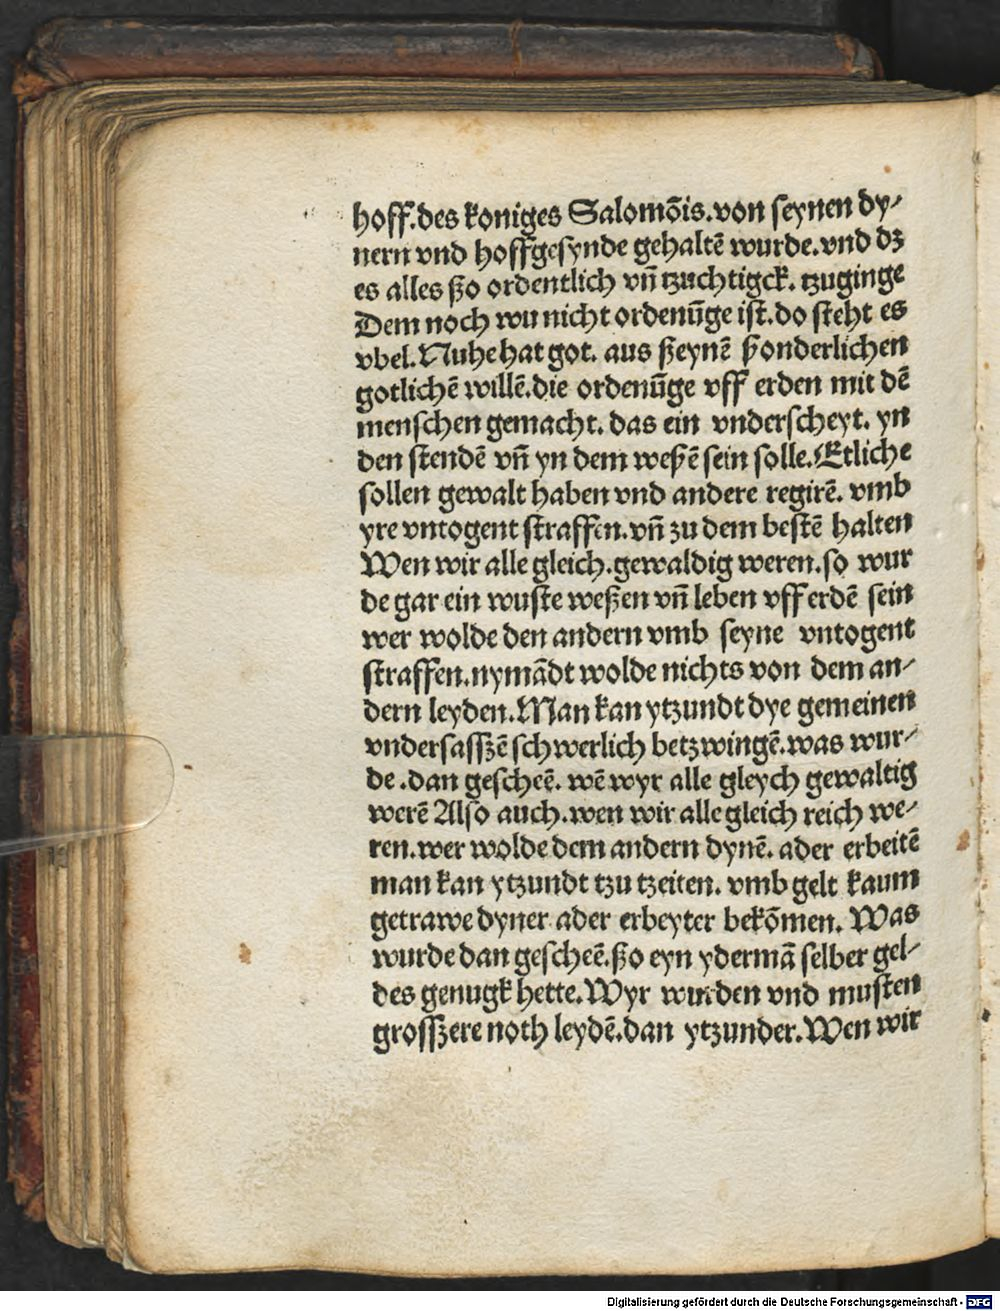 hoff.des koniges Salomõis.von seynen dy⸗
nern vnd hoffgesynde gehaltẽ wurde.vnd dz
es alles ßo ordentlich vñ tzuchtigck. tzuginge
Dem noch wu nicht ordenũge ist.do steht es
vbel.Nuhe hat got. aus ßeynẽ ßonderlichen
gotlichẽ willẽ.die ordenũge vff erden mit dẽ
menschen gemacht. das ein vnderscheyt. yn
den stendẽ vñ yn dem weßẽ sein solle.Etliche
sollen gewalt haben vnd andere regirẽ. vmb
yre vntogent straffen.vñ zu dem bestẽ halten
Wen wir alle gleich.gewaldig weren.so wur
de gar ein wuste weßen vñ leben vff erdẽ sein
wer wolde den andern vmb seyne vntogent
straffen.nymãdt wolde nichts von dem an⸗
dern leyden.Man kan ytzundt dye gemeinen
vndersasszẽ schwerlich betzwingẽ.was wur⸗
de .dan gescheẽ. wẽ wyr alle gleych gewaltig
werẽ Also auch.wen wir alle gleich reich we⸗
ren.wer wolde dem andern dynẽ. ader erbeitẽ
man kan ytzundt tzu tzeiten. vmb gelt kaum
getrawe dyner ader erbeyter bekõmen. Was
wurde dan gescheẽ.ßo eyn ydermã selber gel⸗
des genugk hette.Wyr wurden vnd musten
grosszere noth leydẽ.dan ytzunder.Wen wir
Digitalisierung gefördert durch die Deutsche Forschungsgemeinschaft - DFG